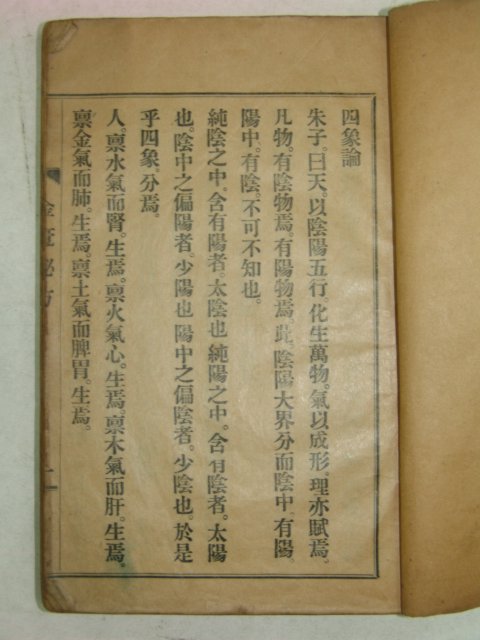 四象論
朱子。曰天。以陰陽五行。化生萬物。氣以成形。理亦賦焉。
凡物。有陰物焉。有陽物焉。此。陰陽大界分而陰中。有陽
陽中。有陰。不可不知也。
純陰之中。含有陽者。太陰也純陽之中。含有陰者。太陽
也。陰中之偏陽者。少陽也陽中之偏陰者。少陰也。於是
乎四象。分焉。
人。禀水氣而腎。生焉。禀火氣心。生焉。禀木氣而肝。生焉。
禀金氣而肺。生焉。禀土氣而脾胃。生焉。
秘方